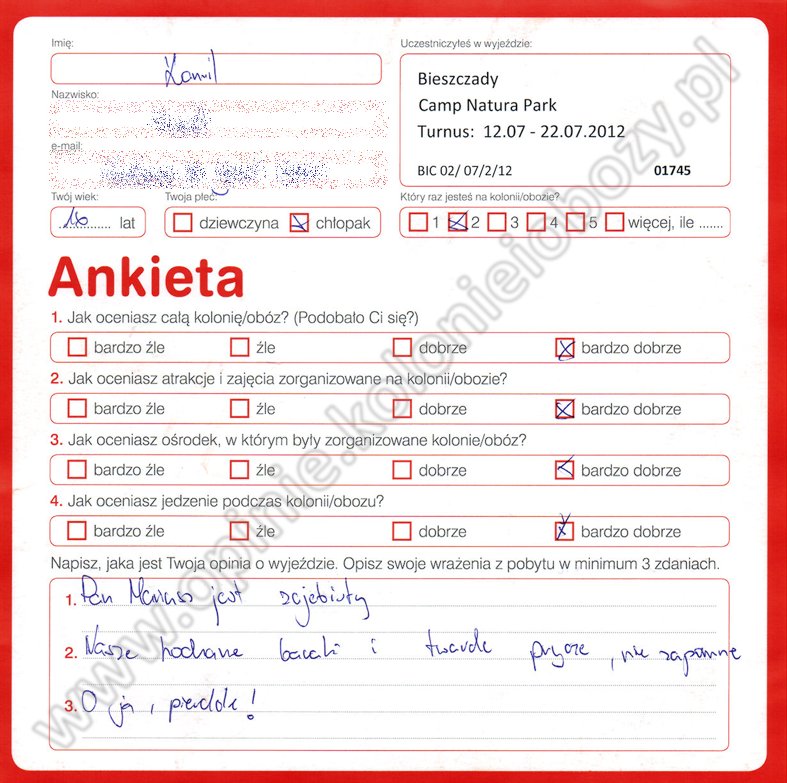 Imię:
Kamil
Nazwisko:
e-mail:
Twój wiek:
16 lat
Twoja płeć:
dziewczyna chłopak
Uczestniczyłeś w wyjeździe:
Bieszczady
Camp Natura Park
Turnus: 12.07 - 22.07.2012
BIC 02/ 07/2/12 01745
Który raz jesteś na kolonii/obozie?
1 2 3 4 5 więcej, ile .......
Ankieta
1. Jak oceniasz całą kolonię/obóz? (Podobało Ci się?)
bardzo źle źle dobrze bardzo dobrze
2. Jak oceniasz atrakcje i zajęcia zorganizowane na kolonii/obozie?
bardzo źle źle dobrze bardzo dobrze
3. Jak oceniasz ośrodek, w którym były zorganizowane kolonie/obóz?
bardzo źle źle dobrze bardzo dobrze
4. Jak oceniasz jedzenie podczas kolonii/obozu?
bardzo źle źle dobrze bardzo dobrze
Napisz, jaka jest Twoja opinia o wyjeździe. Opisz swoje wrażenia z pobytu w minimum 3 zdaniach.
1. Pan Mariusz jest zajebisty
2. Nasze kochane baraki i twarde prycze, nie zapomnę
3. O ja, pierdole!
www.opinie.kolonieiobozy.pl